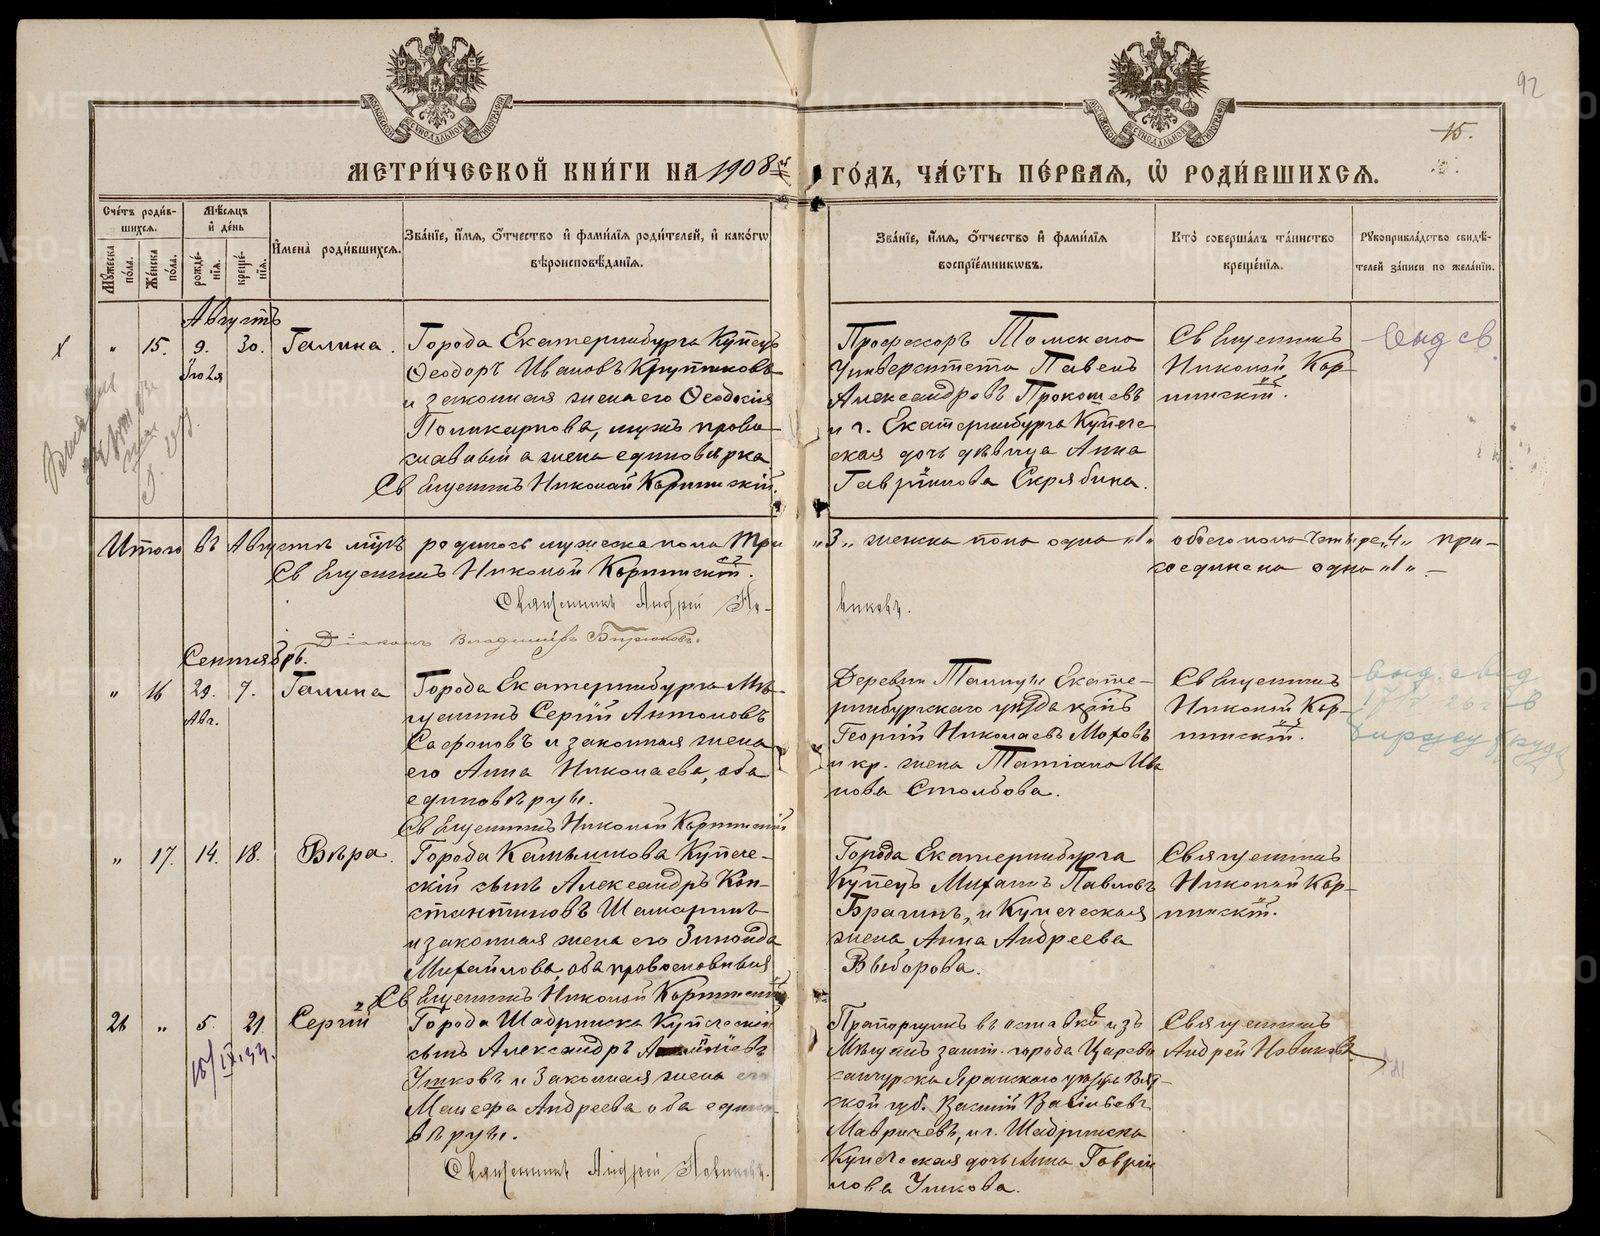 92
15.
МЕТРИ́ЧЕСКОЙ КНИ́ГИ НА 1908 й ГО́ДЪ, ЧА́СТЬ ПЕ́РВАЯ, Ѡ РОДИ́ВШИХСЯ.
Сче́тъ роди́вшихся.
Му́жеска по́ла.
Же́нска по́ла.
Мѣ́сяцъ и де́нь
рожде́нїя.
креще́нїя.
И҆мена̀ роди́вшихся.
Зва́нїе, и҆́мя, ѻ҆́тчество и҆ фами́лїя роди́телей, и҆ како́гѡ
вѣроисповѣ́данїя.
Зва́нїе, и҆́мя, ѻ҆́тчество и҆ фами́лїя
воспрїе́мникѡвъ.
Кто̀ соверша́лъ та́инство
креще́нїя.
Рꙋкоприкла́дство свидѣ́-
телей за́писи по жела́нїю.
Августъ
" 15. 9. 30. Галина.
Іюля
Города Екатеринбурга Купецъ
Ѳеодоръ Ивановъ Крупинковъ
и законная жена его Ѳеодосія
Поликарпова, мужъ право-
славный а жена единовѣрка
Св ященникъ Николай Корминскій.
Профессоръ Томскаго
Университета Павелъ
Александровъ Прокошевъ
и г. Екатеринбурга Купече-
ская дочь дѣвица Анна
Гавріилова Скрябина.
Священникъ
Николай Кор-
минскій.
Итого въ Августѣ м-цѣ родилось мужеска пола три
„3„ женска пола одна „1„ обоего пола четыре „4„ при-
соединена одна „1„ –
Священникъ Николай Корминскій.
Священникъ Андрей Но-
виковъ.
Діаконъ Владиміръ Бирюковъ.
Сентябрь.
" 16 29. 7. Галина
Авг.
Города Екатеринбурга Мѣ-
щанинъ Сергій Антоновъ
Сафоновъ и законная жена
его Анна Николаева, оба
единовѣрцы.
Священникъ Николай Корминскій
Деревни Талицы Екате-
ринбургскаго уѣзда кр-нъ
Георгій Николаевъ Моховъ
и кр. жена Татіана Ива
нова Столбова.
Священникъ
Николай Кор-
минскій.
" 17. 14. 18. Вѣра.
Города Камышлова Купече-
скій сынъ Александръ Кон-
стантиновъ Шамаринъ
и законная жена его Зинаида
Михайлова, оба православныя
Священникъ Николай Корминскій
Города Екатеринбурга
Купецъ Михаилъ Павловъ
Брагинъ, и Купеческая
жена Анна Андреева
Выборова.
Священникъ
Николай Кор-
минскій.
21 " 5. 21. Сергій
Города Шадринска Купеческій
сынъ Александръ
Ушковъ и Законная жена его
Андреева оба едино-
вѣрцы.
Священникъ Андрей Новиковъ.
Прапорщикъ въ отставкѣ изъ
Мѣщанъ зашт. города Царево
санчурска Яранскаго уѣзда Вят-
ской губ. Василій Васильевъ
Мавричевъ, и г. Шадринска
Купеческая дочь Анна Гаврі
лова Ушкова.
Священникъ
Андрей Новиковъ